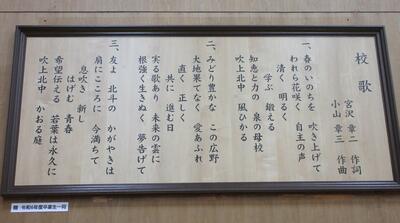 校歌
宮沢章二 作詞
小山章三 作曲
一、春のいのちを 吹き上げて
われら花咲く 自主の声
清く 明るく
学ぶ 鍛える
知恵と力の 泉の母校
吹上北中 風ひかる
二、みどり豊かな この広野
大地果てなく 愛あふれ
直く 正しく
共に 進む日
実る歌あり 未来の雲に
根強く生きぬく 夢告げて
三、友よ 北斗の かがやきは
肩にこころに 今満ちて
息吹き 新し
はげむ 青春
希望伝える 若葉は永久に
吹上北中 かおる庭
贈 令和6年度卒業生一同